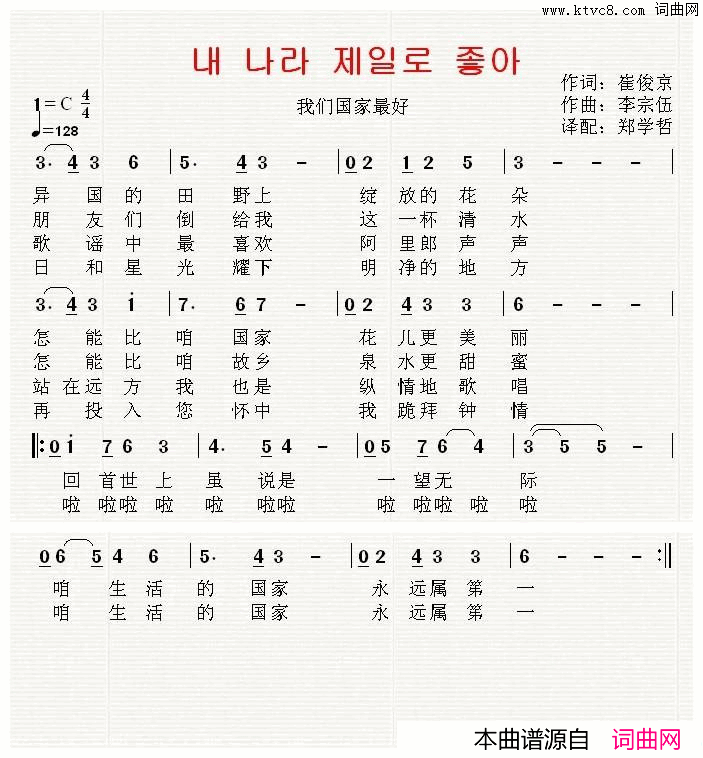 www.ktvc8.com 词曲网
내 나라 제일로 좋아
作词：崔俊京
1=C 4/4 我们国家最好 作曲：李宗伍
♩=128 译配：郑学哲
3· 4 3 6 | 5· 4 3 － | 0 2 1 2 5 | 3 － － － |
异国的田野上 绽放的花朵
朋友们倒给我 这一杯清水
歌谣中最喜欢 阿里郎声声
日和星光耀下 明净的地方
3· 4 3 i | 7· 6 7 － | 0 2 4 3 3 | 6 － － － |
怎能比咱国家 花儿更美丽
怎能比咱故乡 泉水更甜蜜
站在远方我也是 纵情地歌唱
再投入您怀中 我跪拜钟情
‖: 0 i 7 6 3 | 4· 5 4 － | 0 5 7 6 4 | 3 5 5 － |
回首世上虽说是 一望无际
啦 啦啦 啦 啦 啦啦 啦 啦啦 啦 啦
0 6 5 4 6 | 5· 4 3 － | 0 2 4 3 3 | 6 － － － :‖
咱生活的国家 永远属第一
咱生活的国家 永远属第一
本曲谱源自 词曲网